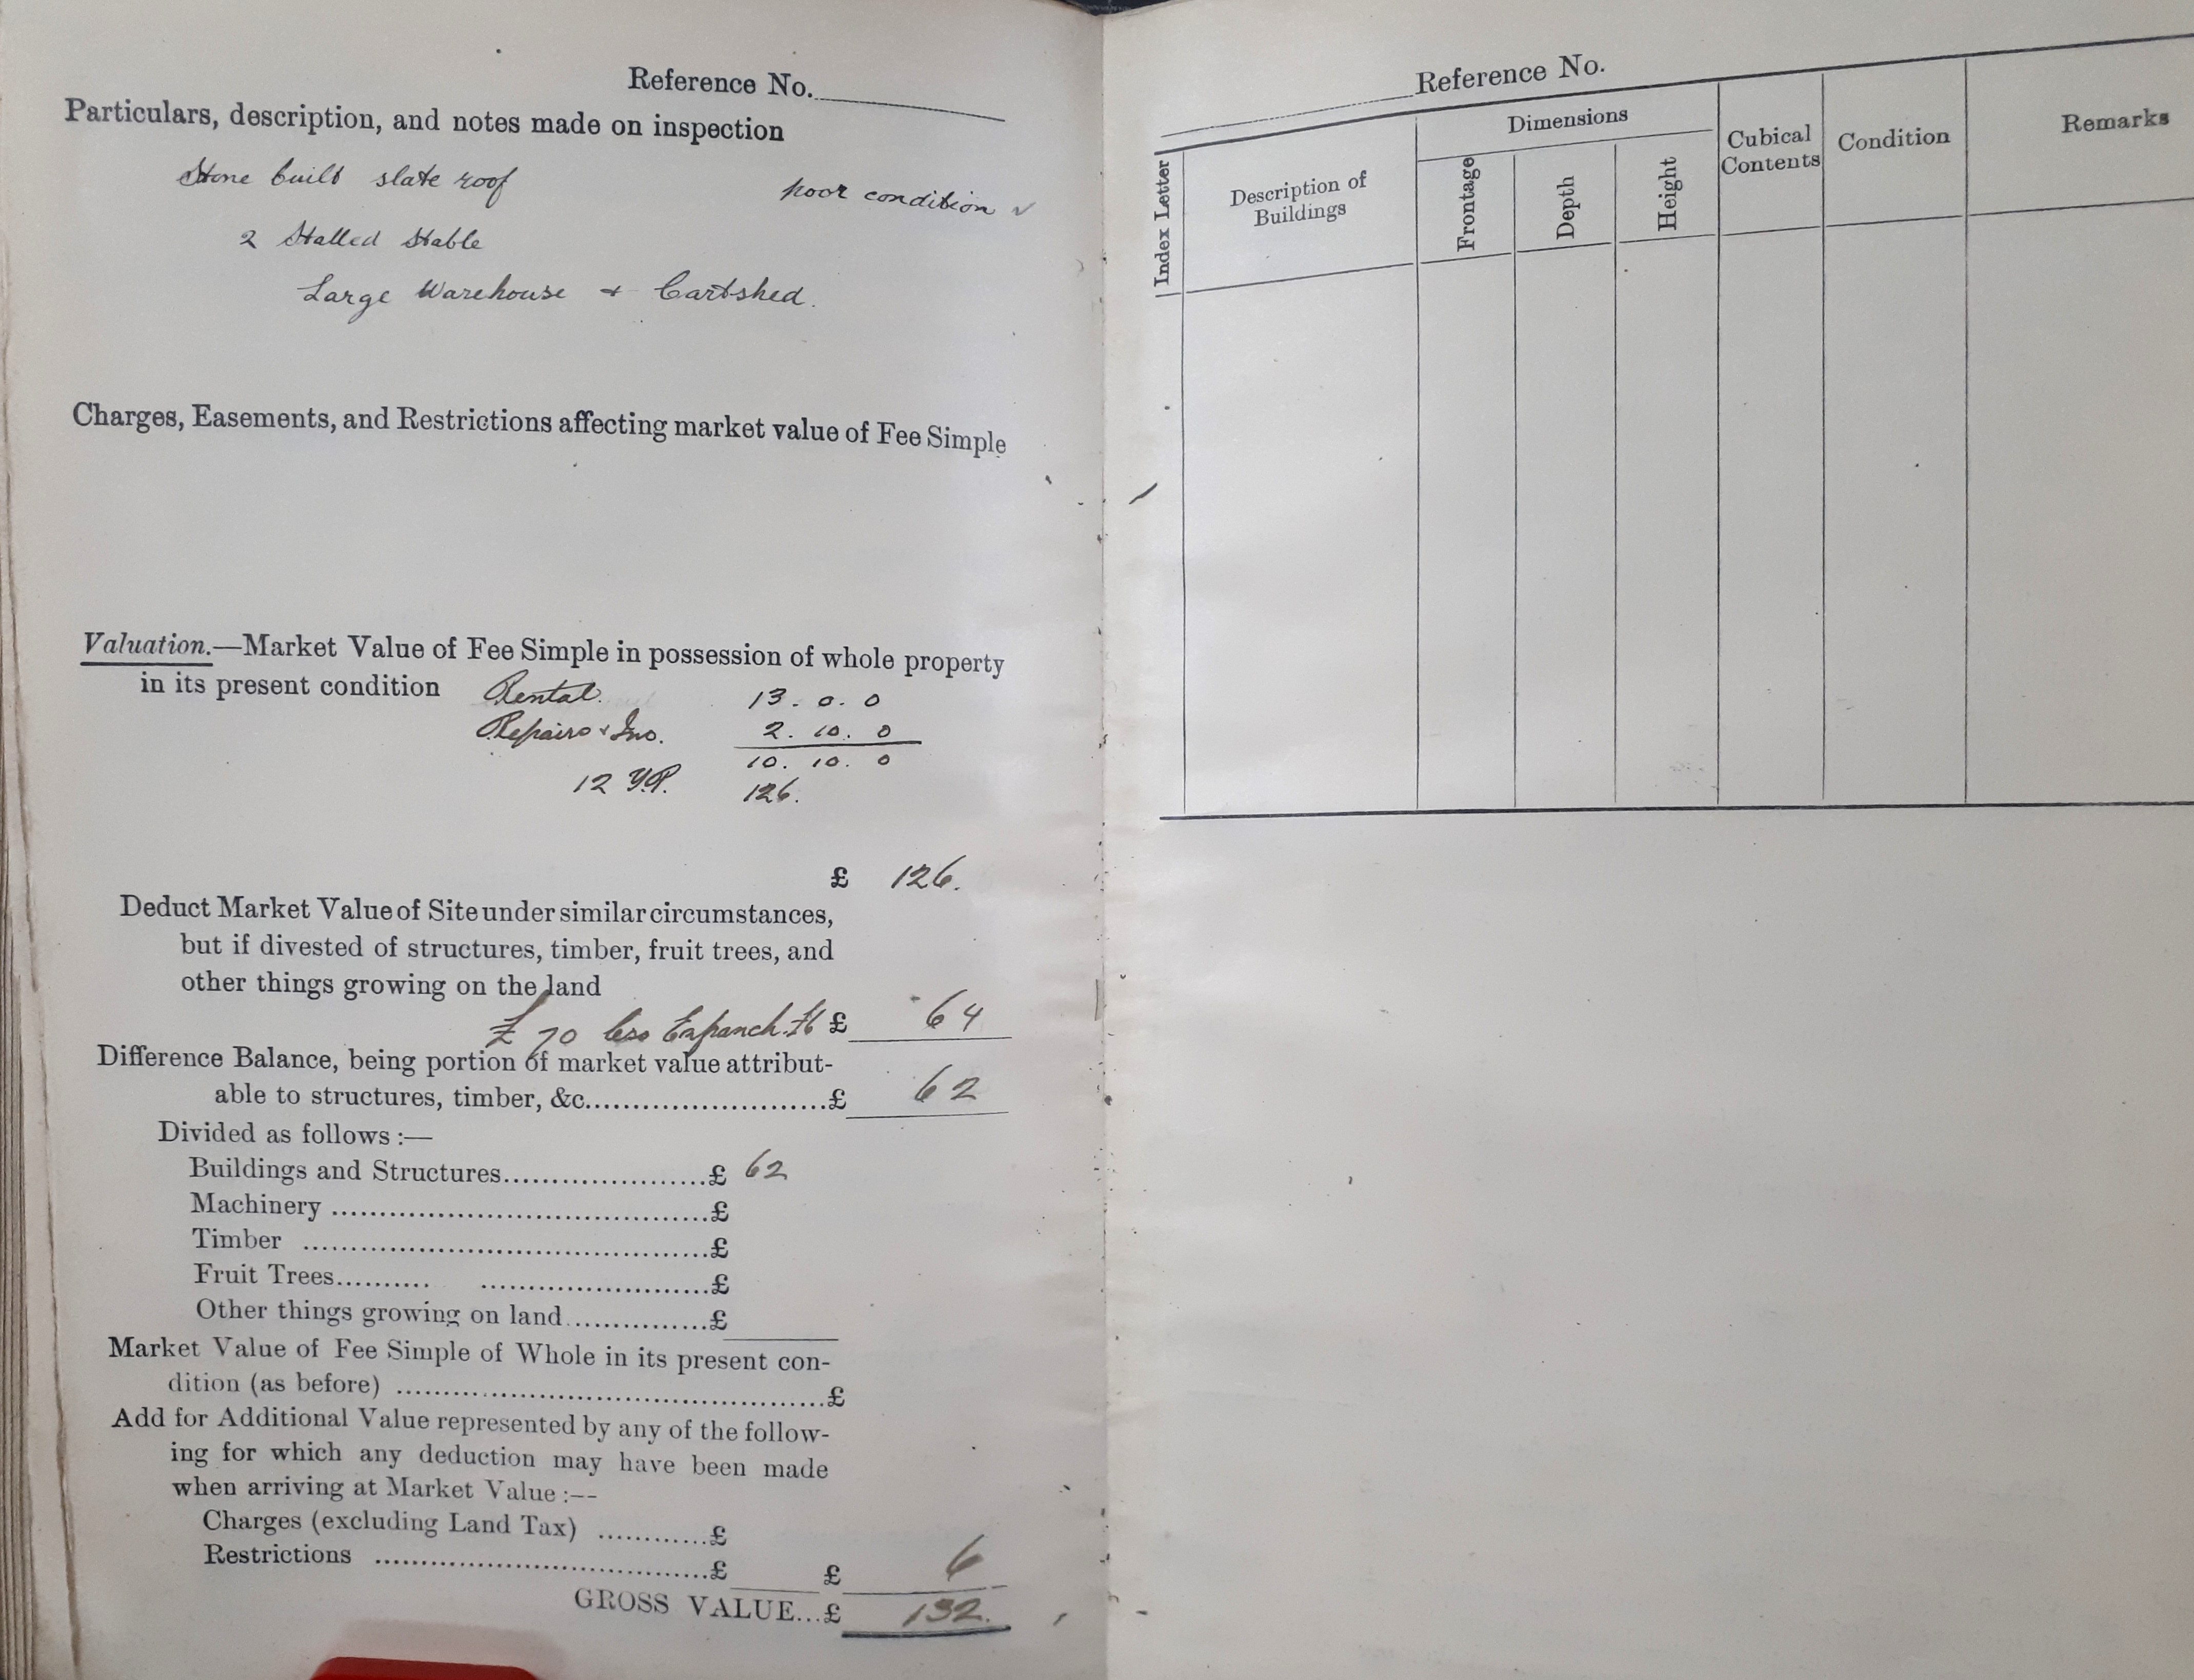 Reference No.
Particulars, description, and notes made on inspection
Stone built slate roof poor condition ✓
2 Stalled Stable
Large Warehouse + Cartshed.
Charges, Easements, and Restrictions affecting market value of Fee Simple
Valuation.—Market Value of Fee Simple in possession of whole property
in its present condition Rental. 13. 0. 0
Repairs + Ins. 2. 10. 0
10. 10. 0
12 Y.P. 126.
£ 126.
Deduct Market Value of Site under similar circumstances,
but if divested of structures, timber, fruit trees, and
other things growing on the land
£70 less Enfranch. £6 £ 64
Difference Balance, being portion of market value attribut-
able to structures, timber, &c..........................£ 62
Divided as follows :—
Buildings and Structures.....................£ 62
Machinery .......................................£
Timber ..........................................£
Fruit Trees.......... .......................£
Other things growing on land...............£
Market Value of Fee Simple of Whole in its present con-
dition (as before) ............................................£
Add for Additional Value represented by any of the follow-
ing for which any deduction may have been made
when arriving at Market Value :--
Charges (excluding Land Tax) ...........£
Restrictions ...................................£ £ 6
GROSS VALUE...£ 132.
Reference No.
Index Letter
Description of
Buildings
Dimensions
Frontage
Depth
Height
Cubical
Contents
Condition
Remarks